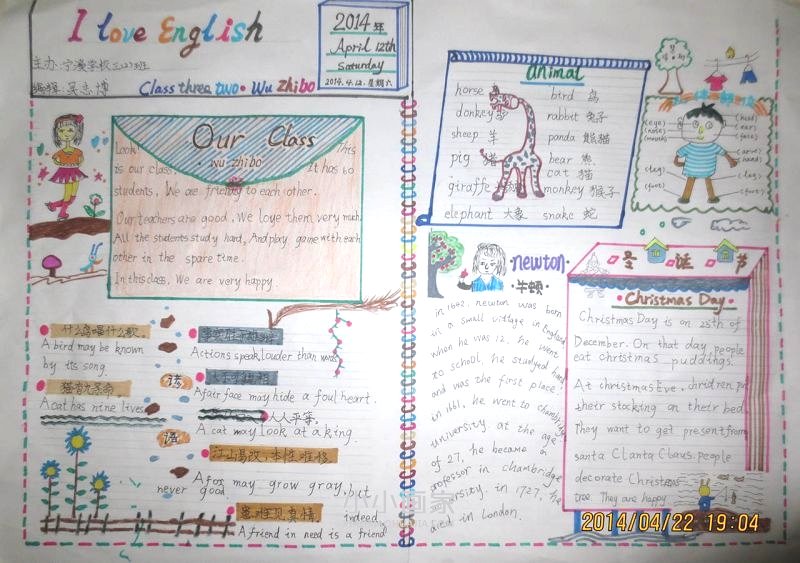 I love English
主办:宁溪学校三(2)班
编辑:吴志博
Class three two • Wu zhibo
2014年
April 12th
Saturday
2014.4.12.星期六
Our Class
• wu-zhibo •
Look! This
is our class. It has 60
students, We are friendly to each other.
Our teachers are good. We love them very much.
All the students study hard, And play game with each
other in the spare time.
In this class, We are very happy.
什么鸟唱什么歌。
A bird may be known
by its song.
猫有九条命。
A cat has nine lives.
谚
语
Actions speak louder than words
A fair face may hide a foul heart.
人人平等。
A cat may look at a king
江山易改,本性难移
A fox may grow gray, but
never good.
患难见真情.
indeed
A friend in need is a friend
animal
horse 马
bird 鸟
donkey 驴
rabbit 兔子
sheep 羊
panda 熊猫
pig 猪
bear 熊
cat 猫
giraffe
monkey 猴子
elephant 大象
snake 蛇
(eye)
(nose)
(mouth)
(head)
(ear)
(face)
(arm)
(hand)
(leg)
(leg)
(foot)
(foot)
newton
牛顿
in 1642. newton was born
in a small village in England
when he was 12, he went
to school, he studied hard
and was the first place!
in 1661, he went to chambridge
university. at the age
of 27, he became a
professor in chambridge
university. in 1727, he
died in London.
圣诞节
• Christmas Day •
Christmas Day is on 25th of
December. On that day people
eat christmas puddings.
At christmas Eve, chridren put
their stocking on their bed
They want to get present from
santa Clanta Claus. people
decorate Christmas
tree. They are happy
小小画家
2014/04/22 19:04